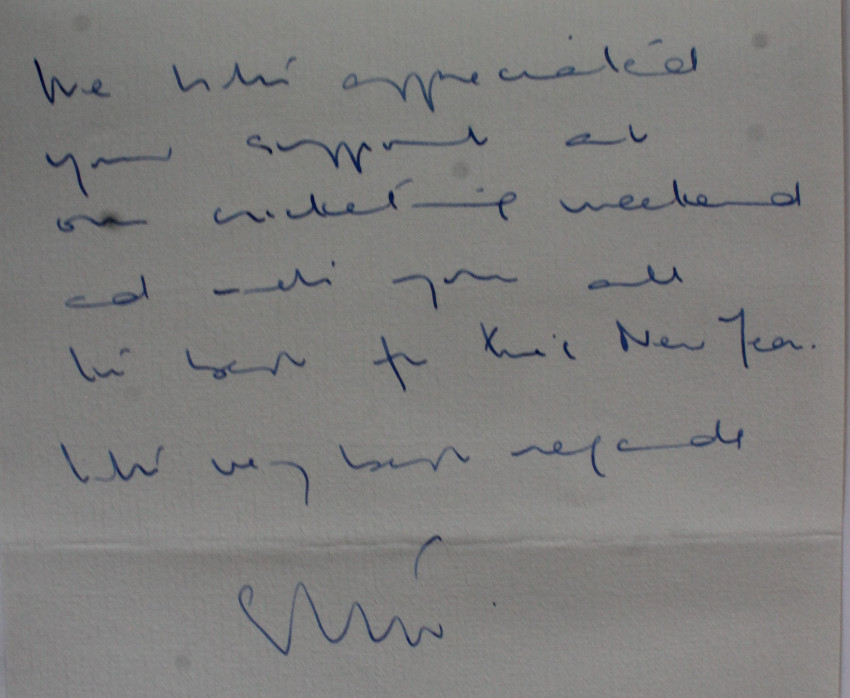 We both appreciated
your support at
our cricketing weekend
and wish you all
the best for this New Year.
With very best regards